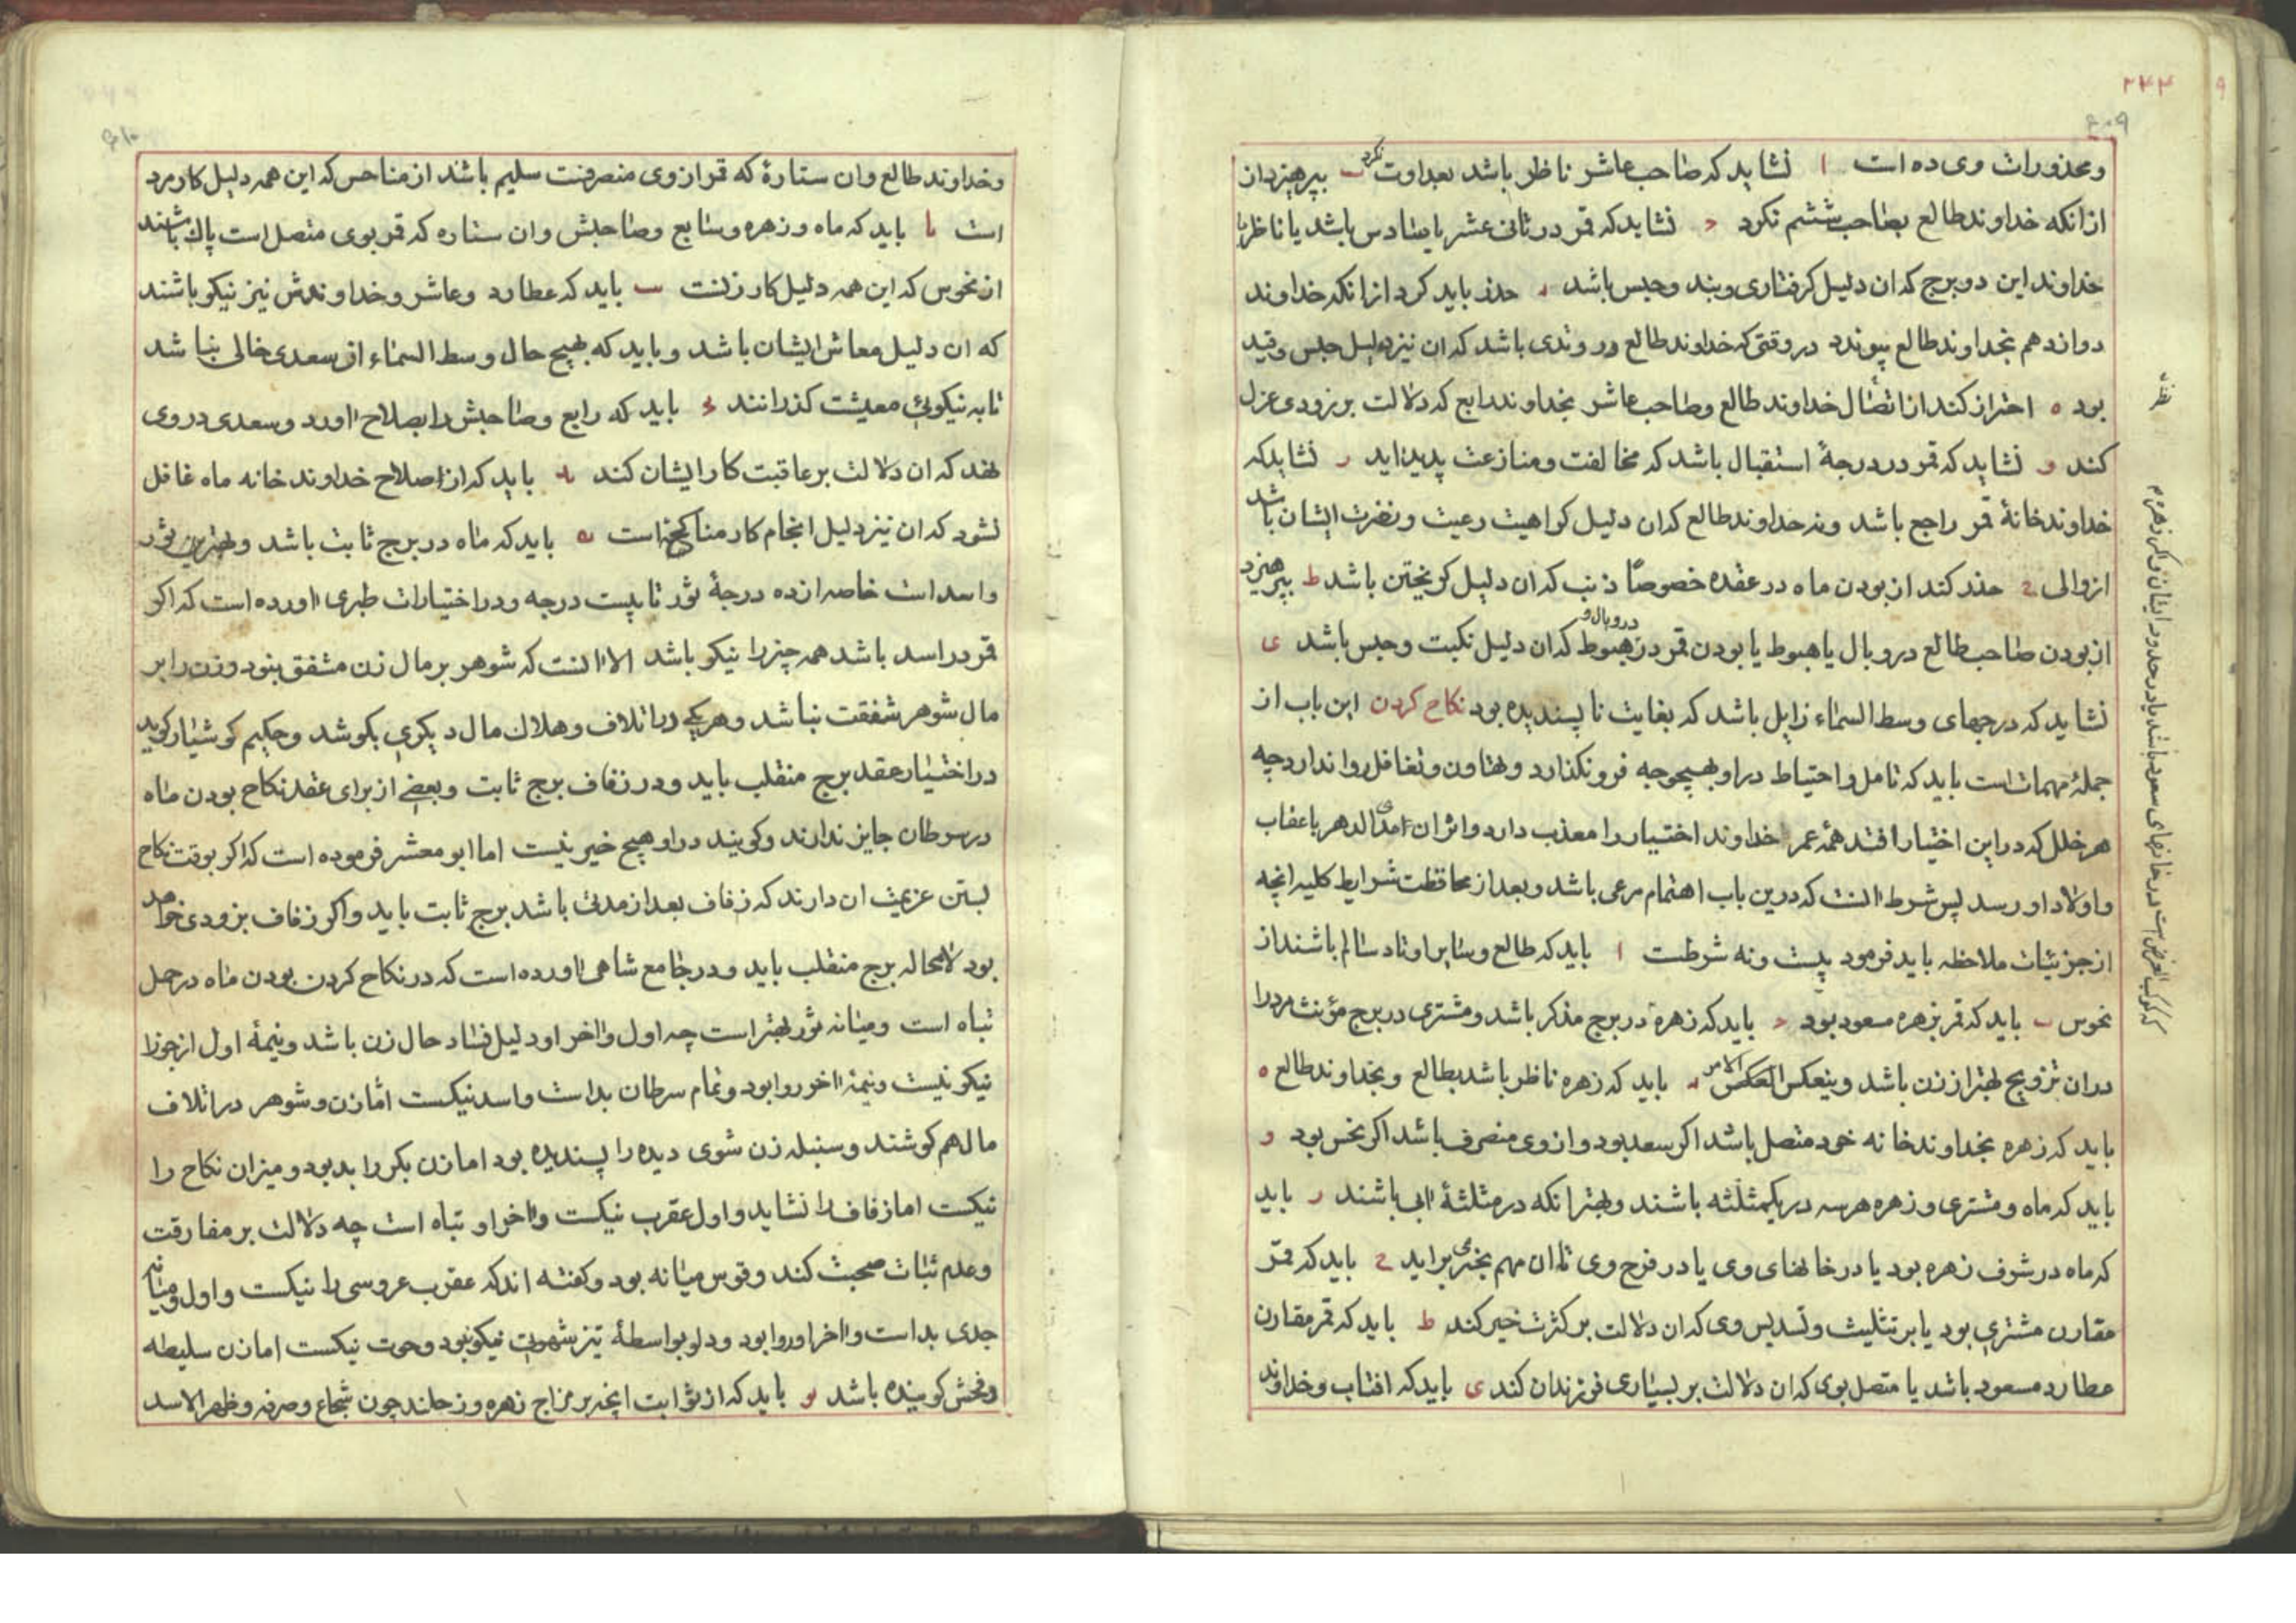 ۲۴۳
۶۰۹
ومحذورات وی ده است ا نشاید که صاحب عاشر ناظر باشد بعداوت نکرد ب بپرهیزد از
ازانکه خداوند طالع بصاحب ششم نکرد ح نشاید که قمر در ثانی عشر یا سادس باشد یا ناظر با
خداوند این دو برج که ان دلیل کرفتاری وبند وحبس باشد د حذر باید کرد ازانکه خداوند
دوازدهم بخداوند طالع پیوندد در وقتی که خداوند طالع در وتدی باشد که ان نیز دلیل حبس وقید
بود ه احتراز کند از اتصال خداوند طالع وصاحب عاشر بخداوند رابع که دلالت بر زودی عزل
کند و نشاید که قمر در درجهٔ استقبال باشد که مخالفت ومنازعت پدید اید ز نشاید که
خداوند خانهٔ قمر راجع باشد ونه خداوند طالع که ان دلیل کراهیت رعیت ونفرت ایشان باشد
از والی ح حذر کند از بودن ماه در عقده خصوصًا ذنب که ان دلیل کریختن باشد ط بپرهیزد
از بودن صاحب طالع در وبال یا هبوط یا بودن قمر در وبال و در هبوط که ان دلیل نکبت وحبس باشد ی
نشاید که درجهای وسط السماء زایل باشد که بغایت ناپسندیده بود نکاح کردن این باب از
جملهٔ مهمات است باید که تامل واحتیاط در او بهیچوجه فرو نکذارد وتهاون وتغافل روا ندارد چه
هر خلل که در این اختیار افتد همهٔ عمر خداوند اختیار را معذب دارد واثر ان امدی الدهر باعقاب
واولاد او رسد پس شرط انست که درین باب اهتمام مرعی باشد وبعد از محافظت شرایط کلیه انچه
از جزئیات ملاحظه باید فرمود بیست ونه شرطست ا باید که طالع وسایر اوتاد سالم باشند از
نحوس ب باید که قمر بزهره مسعود بود ح باید که زهره در برج مذکر باشد ومشتری در برج مؤنث مرد را
دران تزویج بهتر از زن باشد وینعکس العکس الامر د باید که زهره ناظر باشد بطالع وبخداوند طالع ه
باید که زهره بخداوند خانه خود متصل باشد اکر سعد بود واز وی منصرف باشد اکر نحس بود و
باید که ماه ومشتری وزهره هرسه در یکمثلثه باشند وبهتر انکه در مثلثهٔ ابی باشند ز باید
که ماه در شرف زهره بود یا در خانهای وی یا در فرح وی تا ان مهم بخیری براید ح باید که قمر
مقارن مشتری بود یا بر تثلیث وتسدیس وی که ان دلالت بر کثرت خیر کند ط باید که قمر مقارن
عطارد مسعود باشد یا متصل بوی که ان دلالت بر بسیاری فرزندان کند ی باید که افتاب وخداوند
۶۱۰
وخداوند طالع وان ستارهٔ که قمر ازوی منصرفت سلیم باشد از مناحس که این همه دلیل کار مرد
است یا باید که ماه وزهره وسابع وصاحبش وان ستاره که قمر بوی متصل است پاك باشند
از نحوس که این همه دلیل کار زنست یب باید که عطارد وعاشر وخداوندش نیز نیکو باشند
که ان دلیل معاش ایشان باشد وباید که بهیچ حال وسط السماء از سعدی خالی نباشد
تا به نیکوئی معیشت کذرانند یح باید که رابع وصاحبش را بصلاح اورد وسعدی در وی
نهد که ان دلالت بر عاقبت کار ایشان کند ید باید که از اصلاح خداوند خانه ماه غافل
نشود که ان نیز دلیل انجام کار مناکحه است یه باید که ماه در برج ثابت باشد وبهترین ثور
واسد است خاصه از ده درجهٔ ثور تا بیست درجه ودر اختیارات طبری اورده است که اکر
قمر در اسد باشد همه چیز را نیکو باشد الا انست که شوهر بر مال زن مشفق بنود وزن را بر
مال شوهر شفقت نباشد وهر یکی در اتلاف وهلاك مال دیکری بکوشد وحکیم کوشیار کوید
در اختیار عقد برج منقلب باید ودر زفاف برج ثابت وبعضی از برای عقد نکاح بودن ماه
در سرطان جایز ندارند وکویند در او هیچ خیر نیست اما ابو معشر فرموده است که اکر بوقت نکاح
بستن عزیمت ان دارند که زفاف بعد از مدتی باشد برج ثابت باید واکر زفاف بزودی خواهد
بود لامحاله برج منقلب باید ودر جامع شاهی اورده است که در نکاح کردن بودن ماه در حمل
تباه است ومیانه ثور بهتر است چه اول واخر او دلیل فساد حال زن باشد ونیمهٔ اول از جوزا
نیکو نیست ونیمهٔ اخر روا بود وتمام سرطان بد است واسد نیکست امّا زن وشوهر در اتلاف
مال هم کوشند وسنبله زن شوی دیده را پسندیده بود اما زن بکر را بد بود ومیزان نکاح را
نیکست اما زفاف را نشاید واول عقرب نیکست واخر او تباه است چه دلالت بر مفارقت
وعدم ثبات صحبت کند وقوس میانه بود وکفته اند که عقرب عروسی را نیکست واول ومیانه
جدی بد است واخر او روا بود ودلو بواسطهٔ تیز شهوتی نیکو نبود وحوت نیکست اما زن سلیطه
وفحش کوینده باشد یو باید که از ثوابت انچه بر مزاج زهره وزحلند چون شجاع وصرفه وظهر الاسد